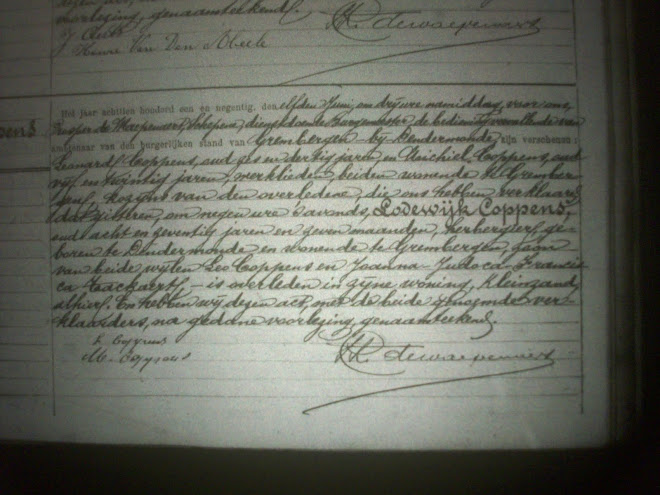 voorlezing, genaamteekend.
J. 
Henri Van Den Abeele
Dewaepenaert
ppens
Het jaar achttien honderd een en negentig, den elfden Juni, om drij ure namiddag, voor ons,
Prosper de Waepenaert, Schepene, dienstdoende Burgemeester de bediening vervullende van
ambtenaar van den burgerlijken stand van Grembergen by Dendermonde, zijn verschenen:
Leonard Coppens, oud zes en dertig jaren en Michiel Coppens, oud
vijf en twintig jaren, werklieden beiden wonende te Grember-
gen, kozyns van den overledene, die ons hebben verklaard
dat gisteren, om negen ure 's avonds, Lodewijk Coppens,
oud acht en zeventig jaren en zeven maanden, herbergier, ge-
boren te Dendermonde en wonende te Grembergen, zoon
van beide wijlen Leo Coppens en Joanna-Judoca-Francis-
ca Caekaert, - is overleden in zijne woning, Kleinzand,
alhier. En hebben wij dezen act, met de beide genoemde ver-
klaarders, na gedane voorlezing, genaamteekend.
L. Coppens
M. Coppens
Dewaepenaert